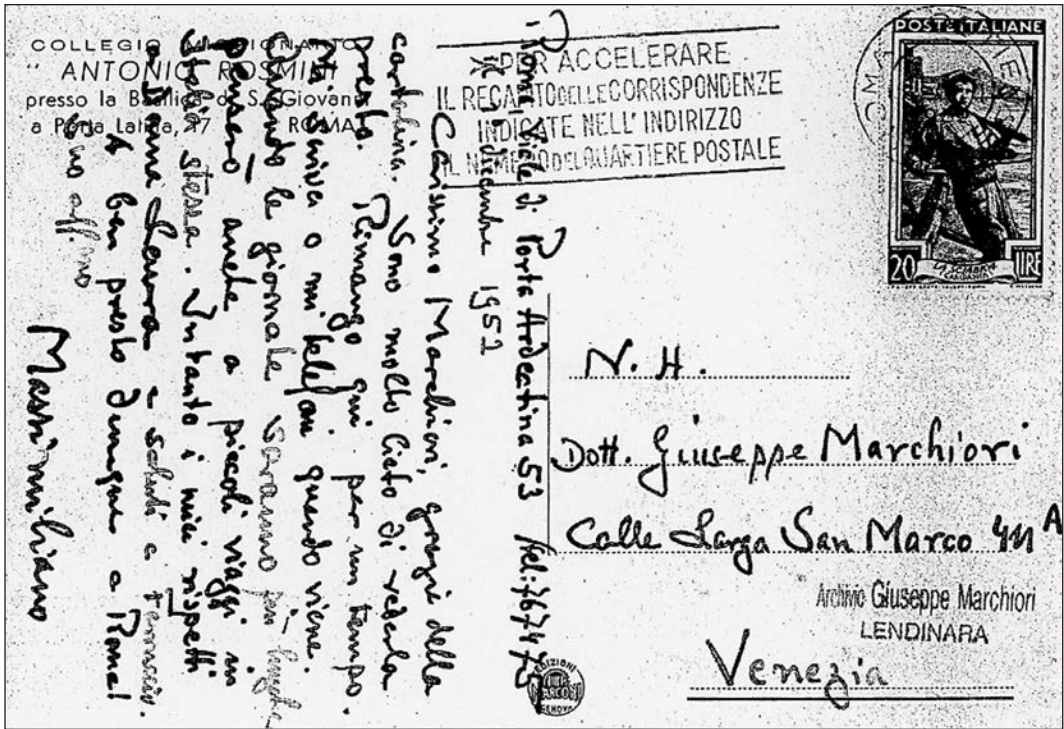 COLLEGIO MISSIONARIO
"ANTONIO ROSMINI"
presso la Basilica di S. Giovanni
a Porta Latina, 17 ROMA
PER ACCELERARE
IL RECAPITO DELLE CORRISPONDENZE
INDICATE NELL'INDIRIZZO
IL NUMERO DEL QUARTIERE POSTALE
POSTE ITALIANE
20 LIRE
Roma, Viale di Porta Ardeatina 53 tel: 767475
dicembre 1952
Carissimo Marchiori, grazie della
cartolina. Sono molto lieto di vederla
presto. Rimango qui per un tempo.
Mi scriva o mi telefoni quando viene.
Quando le giornate saranno più lunghe
penserò anche a piccoli viaggi in
Italia stessa. Intanto i miei rispetti
a Donna Laura e saluti a
A ben presto dunque a Roma!
suo aff.mo
Massimiliano
N. H.
Dott. Giuseppe Marchiori
Calle Larga San Marco A
Venezia
Archivio Giuseppe Marchiori
LENDINARA
EDIZIONI
MARCONI
GENOVA